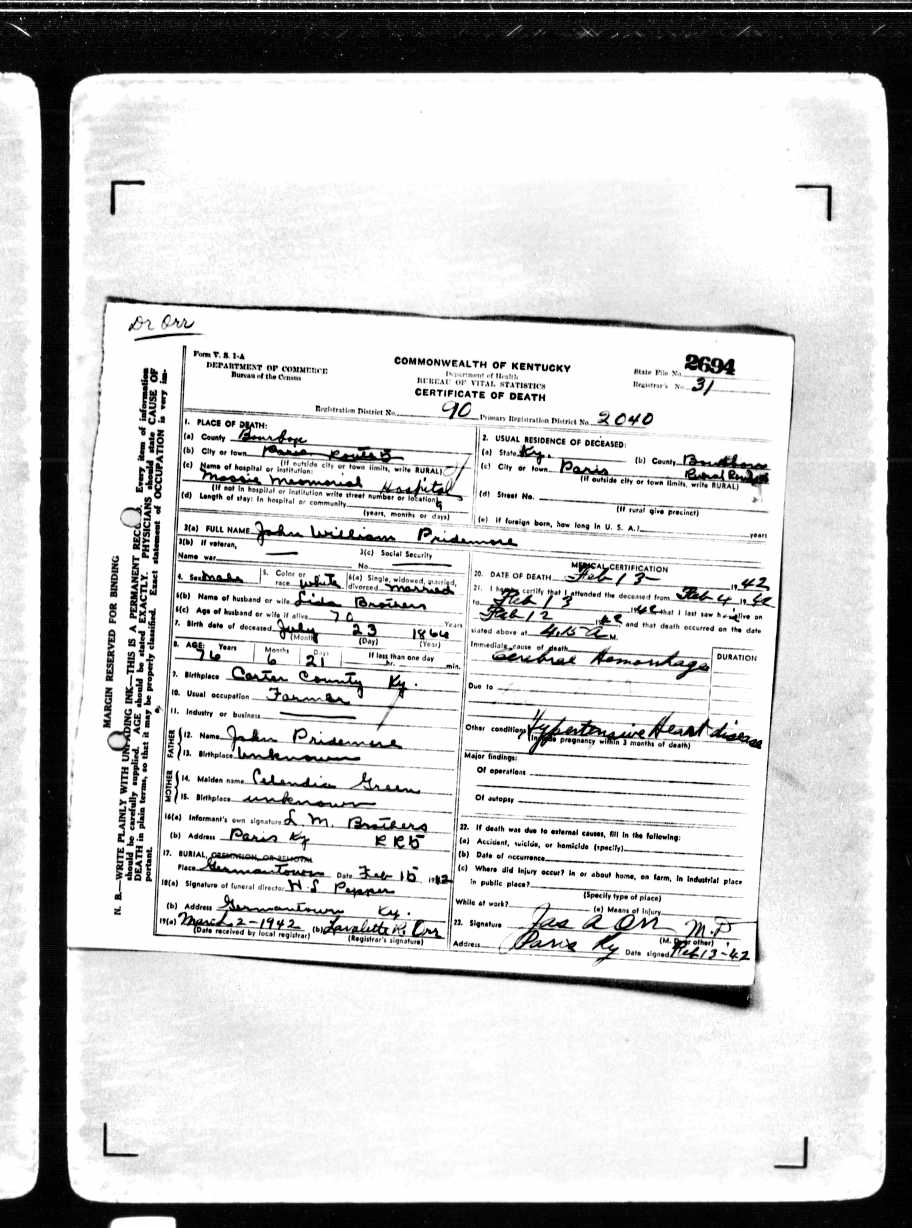 Dr Orr
Form V. S. 1-A
DEPARTMENT OF COMMERCE
Bureau of the Census
COMMONWEALTH OF KENTUCKY
Department of Health
BUREAU OF VITAL STATISTICS
CERTIFICATE OF DEATH
State File No. 2694
Registrar's No. 31
Registration District No. 90 Primary Registration District No. 2040
1. PLACE OF DEATH:
(a) County Bourbon
(b) City or town Paris Route 5
(If outside city or town limits, write RURAL)
(c) Name of hospital or institution:
Massie Meomorial Hospital
(If not in hospital or institution write street number or location)
(d) Length of stay: In hospital or community 9
(years, months or days)
2. USUAL RESIDENCE OF DECEASED:
(a) State Ky. (b) County Bourbon
(c) City or town Paris Rural Route 5
(If outside city or town limits, write RURAL)
(d) Street No.
(If rural give precinct)
(e) If foreign born, how long in U. S. A.? years
3(a) FULL NAME John William Pridemore
3(b) If veteran,
Name war
3(c) Social Security
No.
4. Sex male 5. Color or race white 6(a) Single, widowed, married, divorced married
6(b) Name of husband or wife Lida Brothers
6(c) Age of husband or wife if alive 70 Years
7. Birth date of deceased July 23 1866
(Month) (Day) (Year)
8. AGE: Years Months Days If less than one day
76 6 21 hr. min.
9. Birthplace Carter County Ky.
10. Usual occupation Farmer
11. Industry or business
FATHER
12. Name John Pridemore
13. Birthplace Unknown
MOTHER
14. Maiden name Green
15. Birthplace unknown
16(a) Informant's own signature L. M. Brothers
(b) Address Paris Ky RR5
17. BURIAL, CREMATION, OR REMOVAL
Place Germantown Date Feb 15 1942
18(a) Signature of funeral director H. S Pepper
(b) Address Germantown Ky.
19(a) March 2-1942 (b) Lavalette R. Orr
(Date received by local registrar) (Registrar's signature)
MEDICAL CERTIFICATION
20. DATE OF DEATH Feb 13 - 1942
21. I hereby certify that I attended the deceased from Feb 4 1942
to Feb 13 1942 that I last saw him alive on
Feb 12 1942 and that death occurred on the date
stated above at 4:15 A M.
Immediate cause of death DURATION
Cerebral Hemorrhage
Due to
Other conditions Hypertensive Heart disease
(Include pregnancy within 3 months of death)
Major findings:
Of operations
Of autopsy
22. If death was due to external causes, fill in the following:
(a) Accident, suicide, or homicide (specify)
(b) Date of occurrence
(c) Where did injury occur? In or about home, on farm, in industrial place
in public place?
(Specify type of place)
While at work? (e) Means of injury
23. Signature Jas A Orr M.D
(M. D. or other)
Address Paris Ky Date signed Feb 13-42
MARGIN RESERVED FOR BINDING
N. B.—WRITE PLAINLY WITH UNFADING INK—THIS IS A PERMANENT RECORD. Every item of information
should be carefully supplied. AGE should be stated EXACTLY. PHYSICIANS should state CAUSE OF
DEATH in plain terms, so that it may be properly classified. Exact statement of OCCUPATION is very im-
portant.